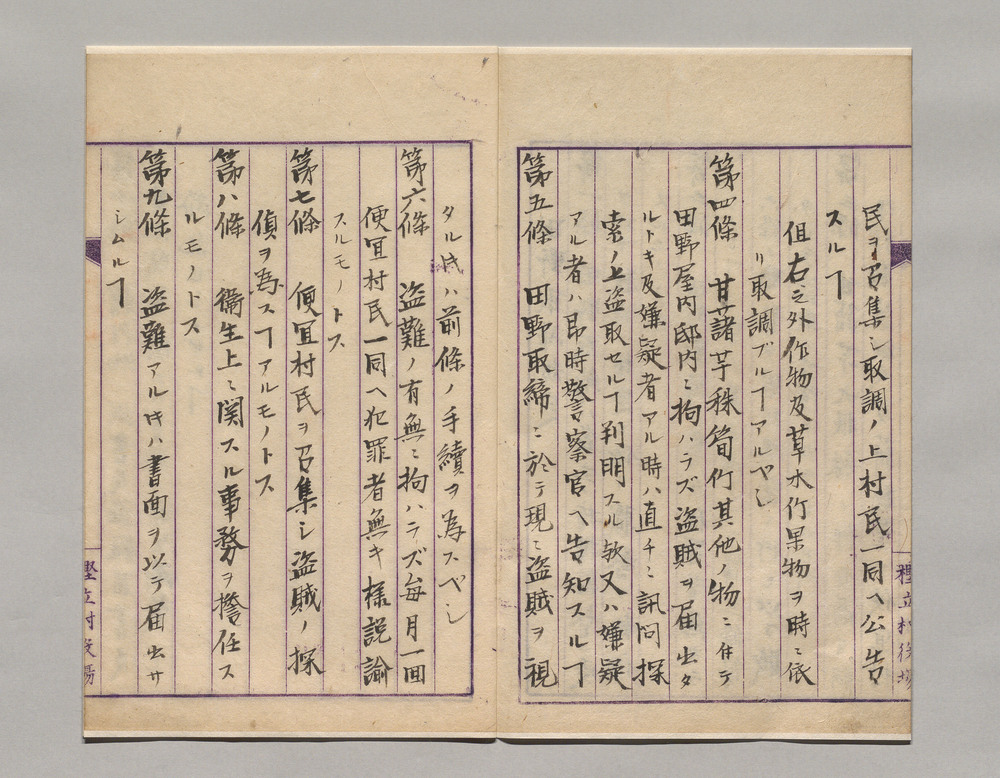 民ヲ召集シ取調ノ上村民一同ヘ公告
スルヿ
但右之外作物及草木竹果物ヲ時ニ依
リ取調ブルヿアルヤシ
第四條 甘藷芋秣筍竹其他ノ物ニ付テ
田野屋内邸内ニ拘ハラズ盗賊ヲ届出タ
ルトキ及嫌疑者アル時ハ直チニ訊問探
索ノ上盗取セルヿ判明スル欤又ハ嫌疑
アル者ハ即時警察官ヘ告知スルヿ
第五條 田野取締ニ於テ現ニ盗賊ヲ視
タル時ハ前條ノ手續ヲ為スベシ
第六條 盗難ノ有無ニ拘ハラズ毎月一回
便冝村民一同ヘ犯罪者無キ様説諭
スルモノトス
第七條 便冝村民ヲ召集シ盗賊ノ探
偵ヲ為スヿアルモノトス
第八條 衛生上ニ関スル事務ヲ擔任ス
ルモノトス
第九條 盗難アル時ハ書面ヲ以テ届出サ
シムルヿ
樫立村役場
樫立村役場